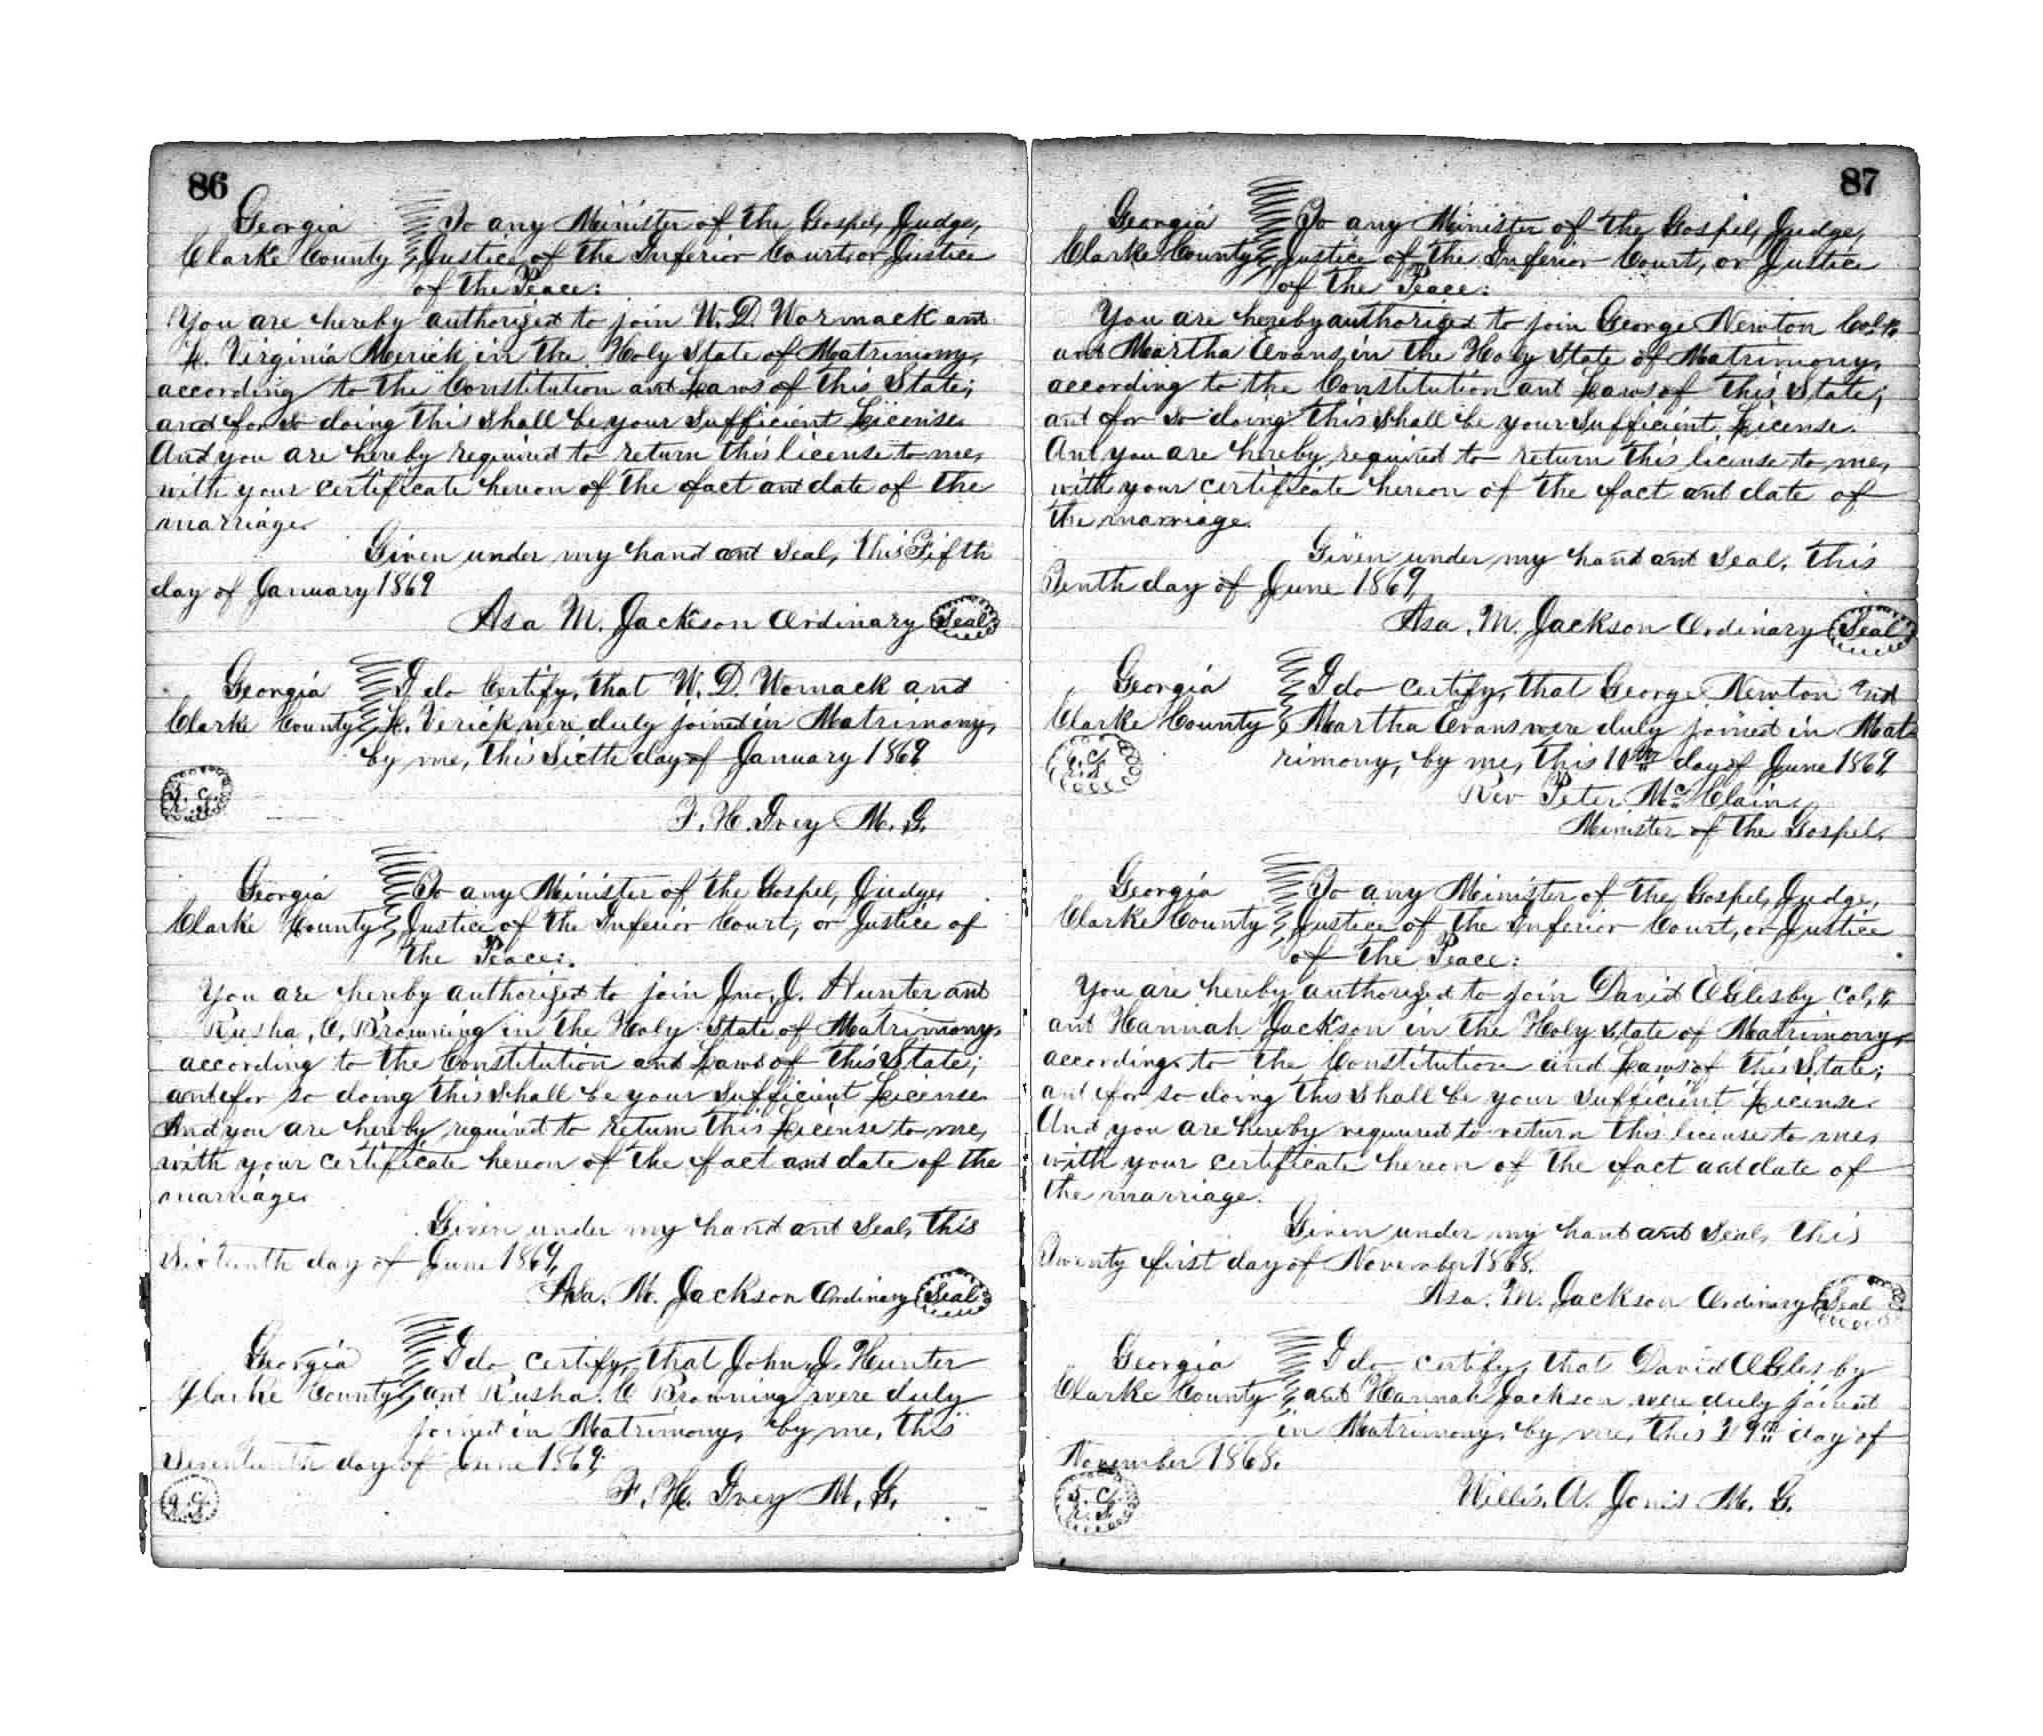 86
Georgia To any Minister of the Gospel, Judge,
Clarke County Justice of the Inferior Court, or Justice
of the Peace:
You are hereby authorized to join W. D. Wormack and
L. Virginia Merick in the Holy State of Matrimony,
according to the Constitution and Laws of this State;
and for so doing this shall be your sufficient License.
And you are hereby required to return this license to me,
with your certificate hereon of the fact and date of the
marriage.
Given under my hand and seal, this Fifth
day of January 1869
Asa M. Jackson Ordinary Seal
Georgia I do Certify, that W. D. Womack and
Clarke County L. Verick were duly joined in Matrimony,
by me, this Sixth day of January 1869
F. H. Ivey M. G.
Georgia To any Minister of the Gospel, Judge,
Clarke County Justice of the Inferior Court, or Justice of
the Peace:
You are hereby authorized to join Jno. J. Hunter and
Rusha. C. Browning in the Holy State of Matrimony,
according to the Constitution and Laws of this State;
and for so doing this shall be your sufficient License.
And you are hereby required to return this License to me,
with your certificate hereon of the fact and date of the
marriage.
Given under my hand and seal, this
Sixteenth day of June 1869,
Asa. M. Jackson Ordinary Seal
Georgia I do certify, that John. J. Hunter
Clarke County and Rusha. C Browning were duly
joined in Matrimony, by me, this
Seventeenth day of June 1869;
F. H. Ivey M. G.
87
Georgia To any Minister of the Gospel, Judge,
Clarke County Justice of the Inferior Court, or Justice
of the Peace:
You are hereby authorized to join George Newton Col.
and Martha Evans, in the Holy State of Matrimony,
according to the Constitution and Laws of this State;
and for so doing this shall be your sufficient License.
And you are hereby required to return this license to me,
with your certificate hereon of the fact and date of
the marriage.
Given under my hand and seal, this
Tenth day of June 1869,
Asa. M. Jackson Ordinary Seal
Georgia I do certify, that George Newton and
Clarke County Martha Evans were duly joined in Mat-
rimony, by me, this 10th day of June 1869,
Rev Peter McClain,
Minister of the Gospel.
Georgia To any Minister of the Gospel, Judge,
Clarke County Justice of the Inferior Court, or Justice
of the Peace:
You are hereby authorized to join David OGlesby Col,
and Hannah Jackson in the Holy state of Matrimony,
according to the Constitution and Laws of this State;
and for so doing this shall be your sufficient License.
And you are hereby required to return this license to me,
with your certificate hereon of the fact and date of
the marriage.
Given under my hand and seal, this
Twenty first day of November 1868.
Asa. M. Jackson Ordinary Seal
Georgia I do certify, that David OGlesby
Clarke County and Hannah Jackson were duly joined
in Matrimony, by me, this 29th day of
November 1868.
Willis. A. Jones M. G.